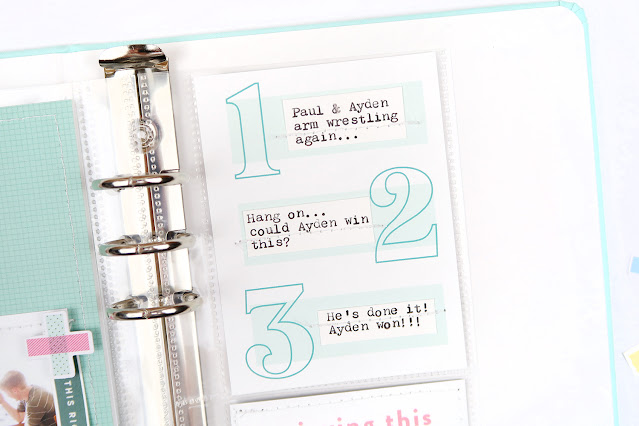 1
Paul & Ayden
arm wrestling
again...
Hang on...
could Ayden win
this?
2
3
He's done it!
Ayden won!!!
THIS
this